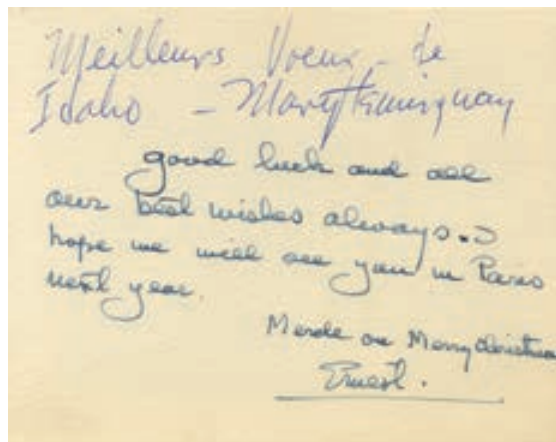 Meilleurs Voeux - de
Idaho - Mary Hemingway
good luck and all
our best wishes always. I
hope we will see you in Paris
next year.
Merde on Merry Christmas
Ernest.